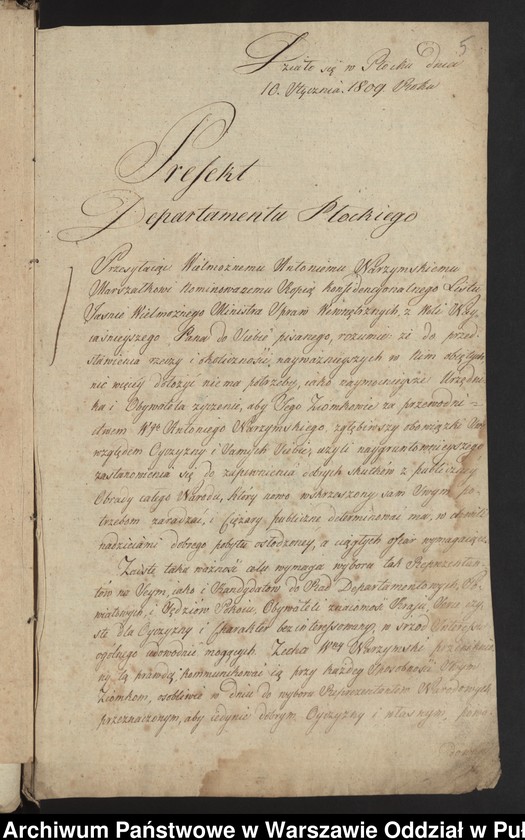 5
Działo się w Płocku dnia
10. Stycznia 1809 Roku
Prefekt
Departamentu Płockiego
Przesyłaiąc Wielmożnemu Antoniemu Narzymskiemu
Marszałkowi nominowanemu Kopią konfidencyonalnego Listu
Jaśnie Wielmożnego Ministra Spraw Wewnętrznych, z Woli Nay
iaśnieyszego Pana do Siebie pisanego, rozumie iż do przed
stawienia rzeczy i okoliczności, nayważnieyszych w tém obiętych
nic więcéy dołożyć niema potrzeby, iako naymocnieysze Urzędni
ka i Obywatela życzenie, aby Jego Ziomkowie za przewodni
ctwem Wgo Antoniego Narzymskiego, zgłębiwszy obowiązki
względem Oyczyzny i Samych Siebie, użyli naygruntownieyszego
zastanowienia się do zapewnienia dobrych skutków z publiczney
Obrady całego Narodu, który nowo wskrzeszony sam Swym po
trzebom zaradzać, i Ciężary publiczne determinować ma, w chwili
nadzieiami dobrego pobytu osłodzoney, a ciągłych ofiar wymagaiącey.
Zaiste taka ważność celu wymaga wyboru tak Reprezentan
tów na Seym, iako i Kandydatów do Rad Departamentowych, Po
wiatowych, i Sędziów Pokoiu, Obywateli znaiomość Kraju, Serce czy
ste dla Oyczyzny i Charakter bezinteressowny, w śrzód Interessu
ogólnego udowodnić mogących. Zechce Wny Narzymski
tą prawdą, kommunikować ią przy każdey Sposobności Swym
Ziomkom, osobliwie w dniu do wyboru Reprezentantów Narodowych
przeznaczonym, aby iedynie dobrym Oyczyzny i własnym, powo
Archiwum Państwowe w Warszawie Oddział w Puł